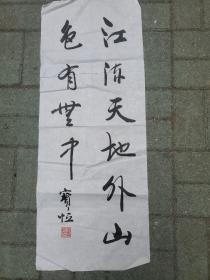 江流天地外山
色有無中
寶恒